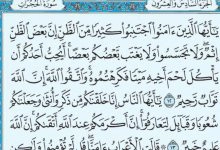 الجزء السادس والعشرون سورة الحجرات
يَٰٓأَيُّهَا ٱلَّذِينَ ءَامَنُوا۟ ٱجْتَنِبُوا۟ كَثِيرًا مِّنَ ٱلظَّنِّ إِنَّ بَعْضَ ٱلظَّنِّ
إِثْمٌ وَلَا تَجَسَّسُوا۟ وَلَا يَغْتَب بَّعْضُكُم بَعْضًا أَيُحِبُّ أَحَدُكُمْ أَن
يَأْكُلَ لَحْمَ أَخِيهِ مَيْتًا فَكَرِهْتُمُوهُ وَٱتَّقُوا۟ ٱللَّهَ إِنَّ ٱللَّهَ
تَوَّابٌ رَّحِيمٌ ١٢ يَٰٓأَيُّهَا ٱلنَّاسُ إِنَّا خَلَقْنَٰكُم مِّن ذَكَرٍ وَأُنثَىٰ وَجَعَلْنَٰكُمْ
شُعُوبًا وَقَبَآئِلَ لِتَعَارَفُوٓا۟ إِنَّ أَكْرَمَكُمْ عِندَ ٱللَّهِ أَتْقَىٰكُمْ إِنَّ ٱللَّهَ